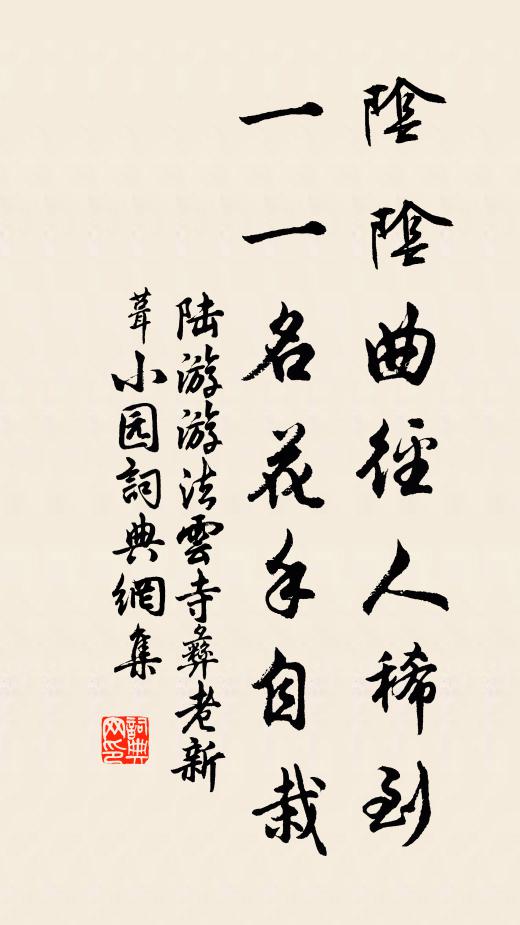 陰陰曲徑人稀到
一一名花手自栽
陆游游法雲寺彝老新
葺小园詞典網集
詞典网印